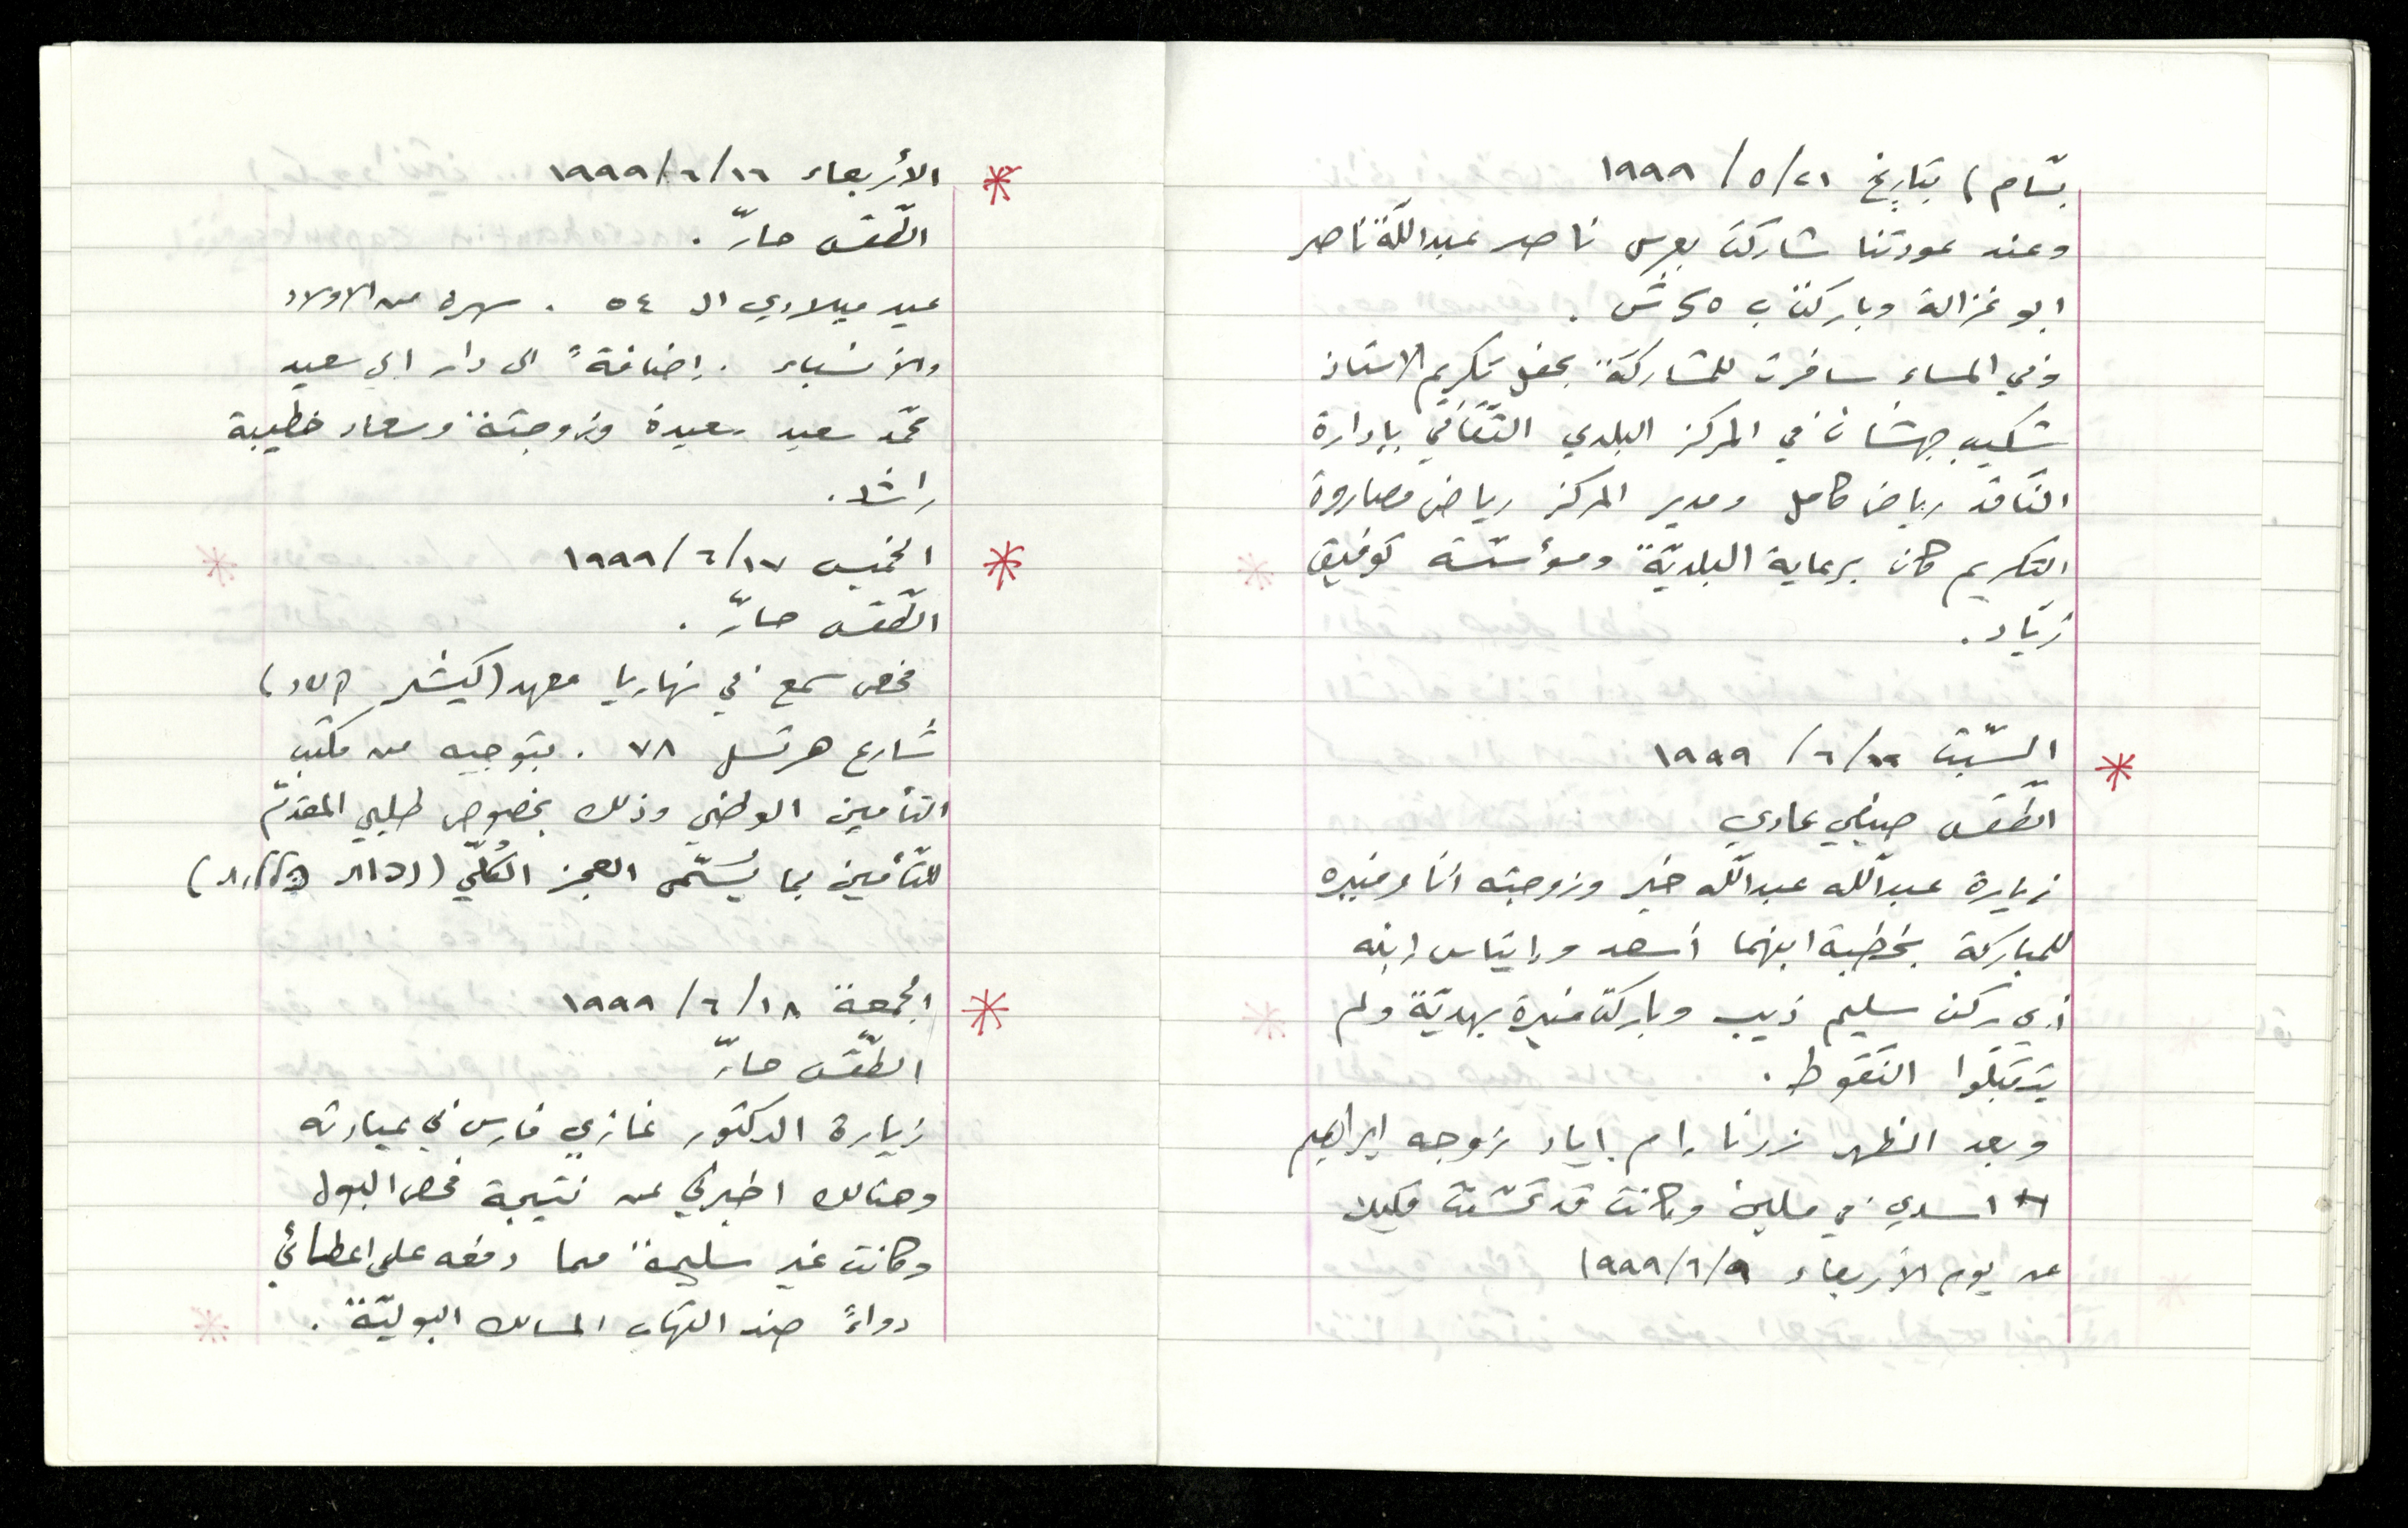 بسّام) بتاريخ ٢١/٥/١٩٩٩
وعند عودتنا شاركت بعرس ناصر عبدالله ناصر
ابو غزالة وباركت ب ٢٥٠ ش .
وفي المساء سافرت للمشاركة بحفل تكريم الاستاذ
شكيب جهشان في المركز البلدي الثّقافي بإدارة
النّاقد رياض كامل ومدير المركز رياض مصاروة
التكريم كان برعاية البلديّة ومؤسّسة توفيق
زيّاد .
السّبت ١٢/٦/١٩٩٩
الطّقس صيفي عادي
زيارة عبدالله عبدالله خير وزوجته انا ومنيره
للمباركة بخطبة ابنهما أسعد وإيناس إبنه
أبي ركن سليم ذيب وباركت منيرة بهديّة ولم
يتقبّلوا النّقوط .
وبعد الظهر زرنا إم إياد زوجه ابراهيم
اسدي في ملين وكانت قد تحسّنت قليلا
عن يوم الأربعاء ٩/٦/١٩٩٩
الأربعاء ١٦/٦/١٩٩٩
الطّقس حارّ .
عيد ميلادي ال ٥٤ . سهره مع الاولاد
والأنسباء . إضافةً الى دار ابي سعيد
محمّد سعيد سعيدة وزوجتة وسعاد خطيبة
راشد .
الخميس ١٧/٦/١٩٩٩
الطّقس حارّ .
فحص سمع في نهاريا معهد (كيشر קשר)
شارع هرتسل ٧٨ . بتوجيه من مكتب
التأمين الوطني وذلك بخصوص طلبي المقدّم
للتّأمين بما يُسمّى العجز الكُلّي (נכות כללית)
الجمعة ١٨/٦/١٩٩٩
الطّقس حارّ
زيارة الدكتور غازي فارس في عيادته
وهنالك اخبرني عن نتيجة فحص البول
وكانت غير سليمة مما دفعه على اعطائي
دواءً ضد التهاب المسالك البوليّة .